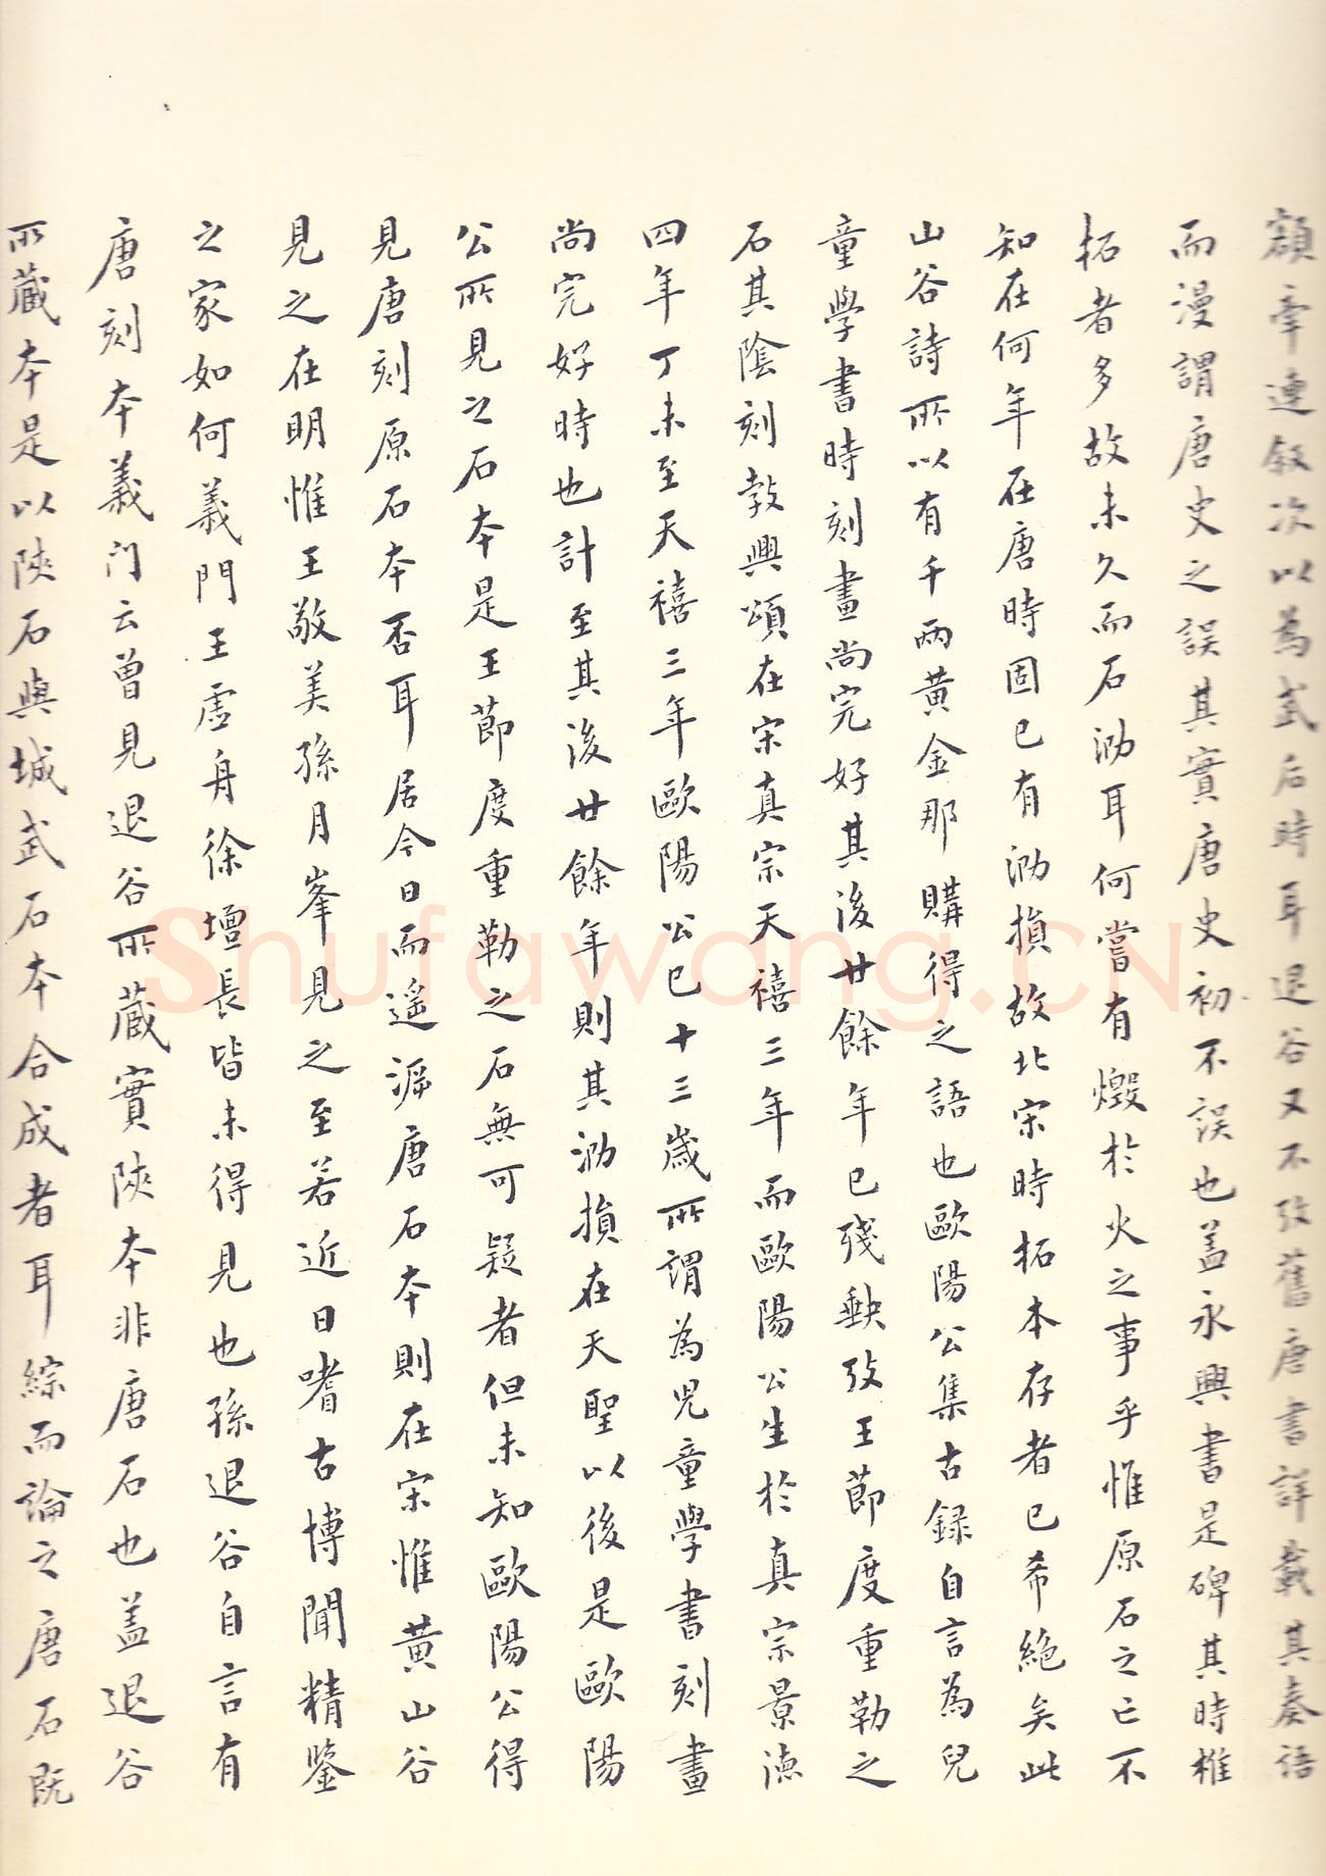 額牽連敘次以為武后時耳退谷又不攷舊唐書詳載其奏語
而漫謂唐史之誤其實唐史初不誤也盖永興書是碑其時椎
拓者多故未久而石泐耳何當有燬於火之事乎惟原石之亡不
知在何年在唐時固已有泐損故北宋時拓本存者已希絕矣此
山谷詩所以有千兩黄金那購得之語也歐陽公集古録自言為兒
童學書時刻畫尚完好其後廿餘年已殘缺攷王節度重勒之
石其陰刻敦興頌在宋真宗天禧三年而歐陽公生於真宗景德
四年丁未至天禧三年歐陽公已十三歲所謂為児童學書刻畫
尚完好時也計至其後廿餘年則其泐損在天聖以後是歐陽
公所見之石本是王節度重勒之石無可疑者但未知歐陽公得
見唐刻原石本否耳居今日而遥溯唐石本則在宋惟黄山谷
見之在明惟王敬美孫月峯見之至若近日嗜古博聞精鑒
之家如何義門王虛舟徐壇長皆未得見也孫退谷自言有
唐刻本義门云曾見退谷所藏實陝本非唐石也盖退谷
所藏本是以陝石與城武石本合成者耳綜而論之唐石既
Shufawang.CN